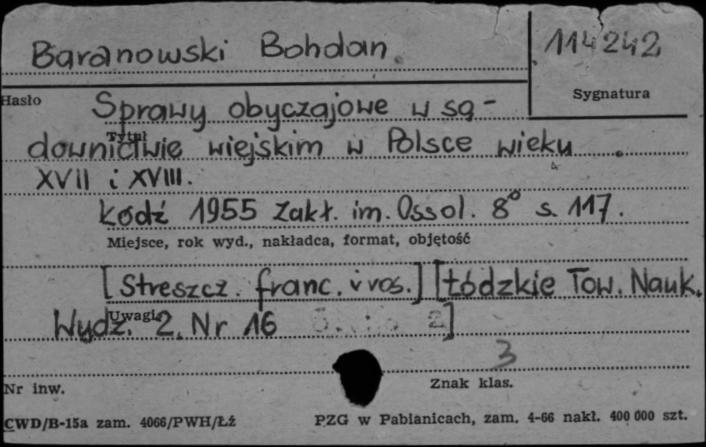 Baranowski Bohdan
114242
Sygnatura
Hasło
Sprawy obyczajowe w są-
Tytuł
downictwie wiejskim w Polsce wieku
XVII i XVIII.
Łódź 1955 Zakł. im. Ossol. 8° s. 117.
Miejsce, rok wyd., nakładca, format, objętość
[Streszcz. franc. i ros.] [Łódzkie Tow. Nauk.
Uwagi
Wydz. 2. Nr 16 ]
3
Nr inw.
Znak klas.
CWD/B-15a zam. 4066/PWH/Łż
PZG w Pabianicach, zam. 4-66 nakł. 400 000 szt.